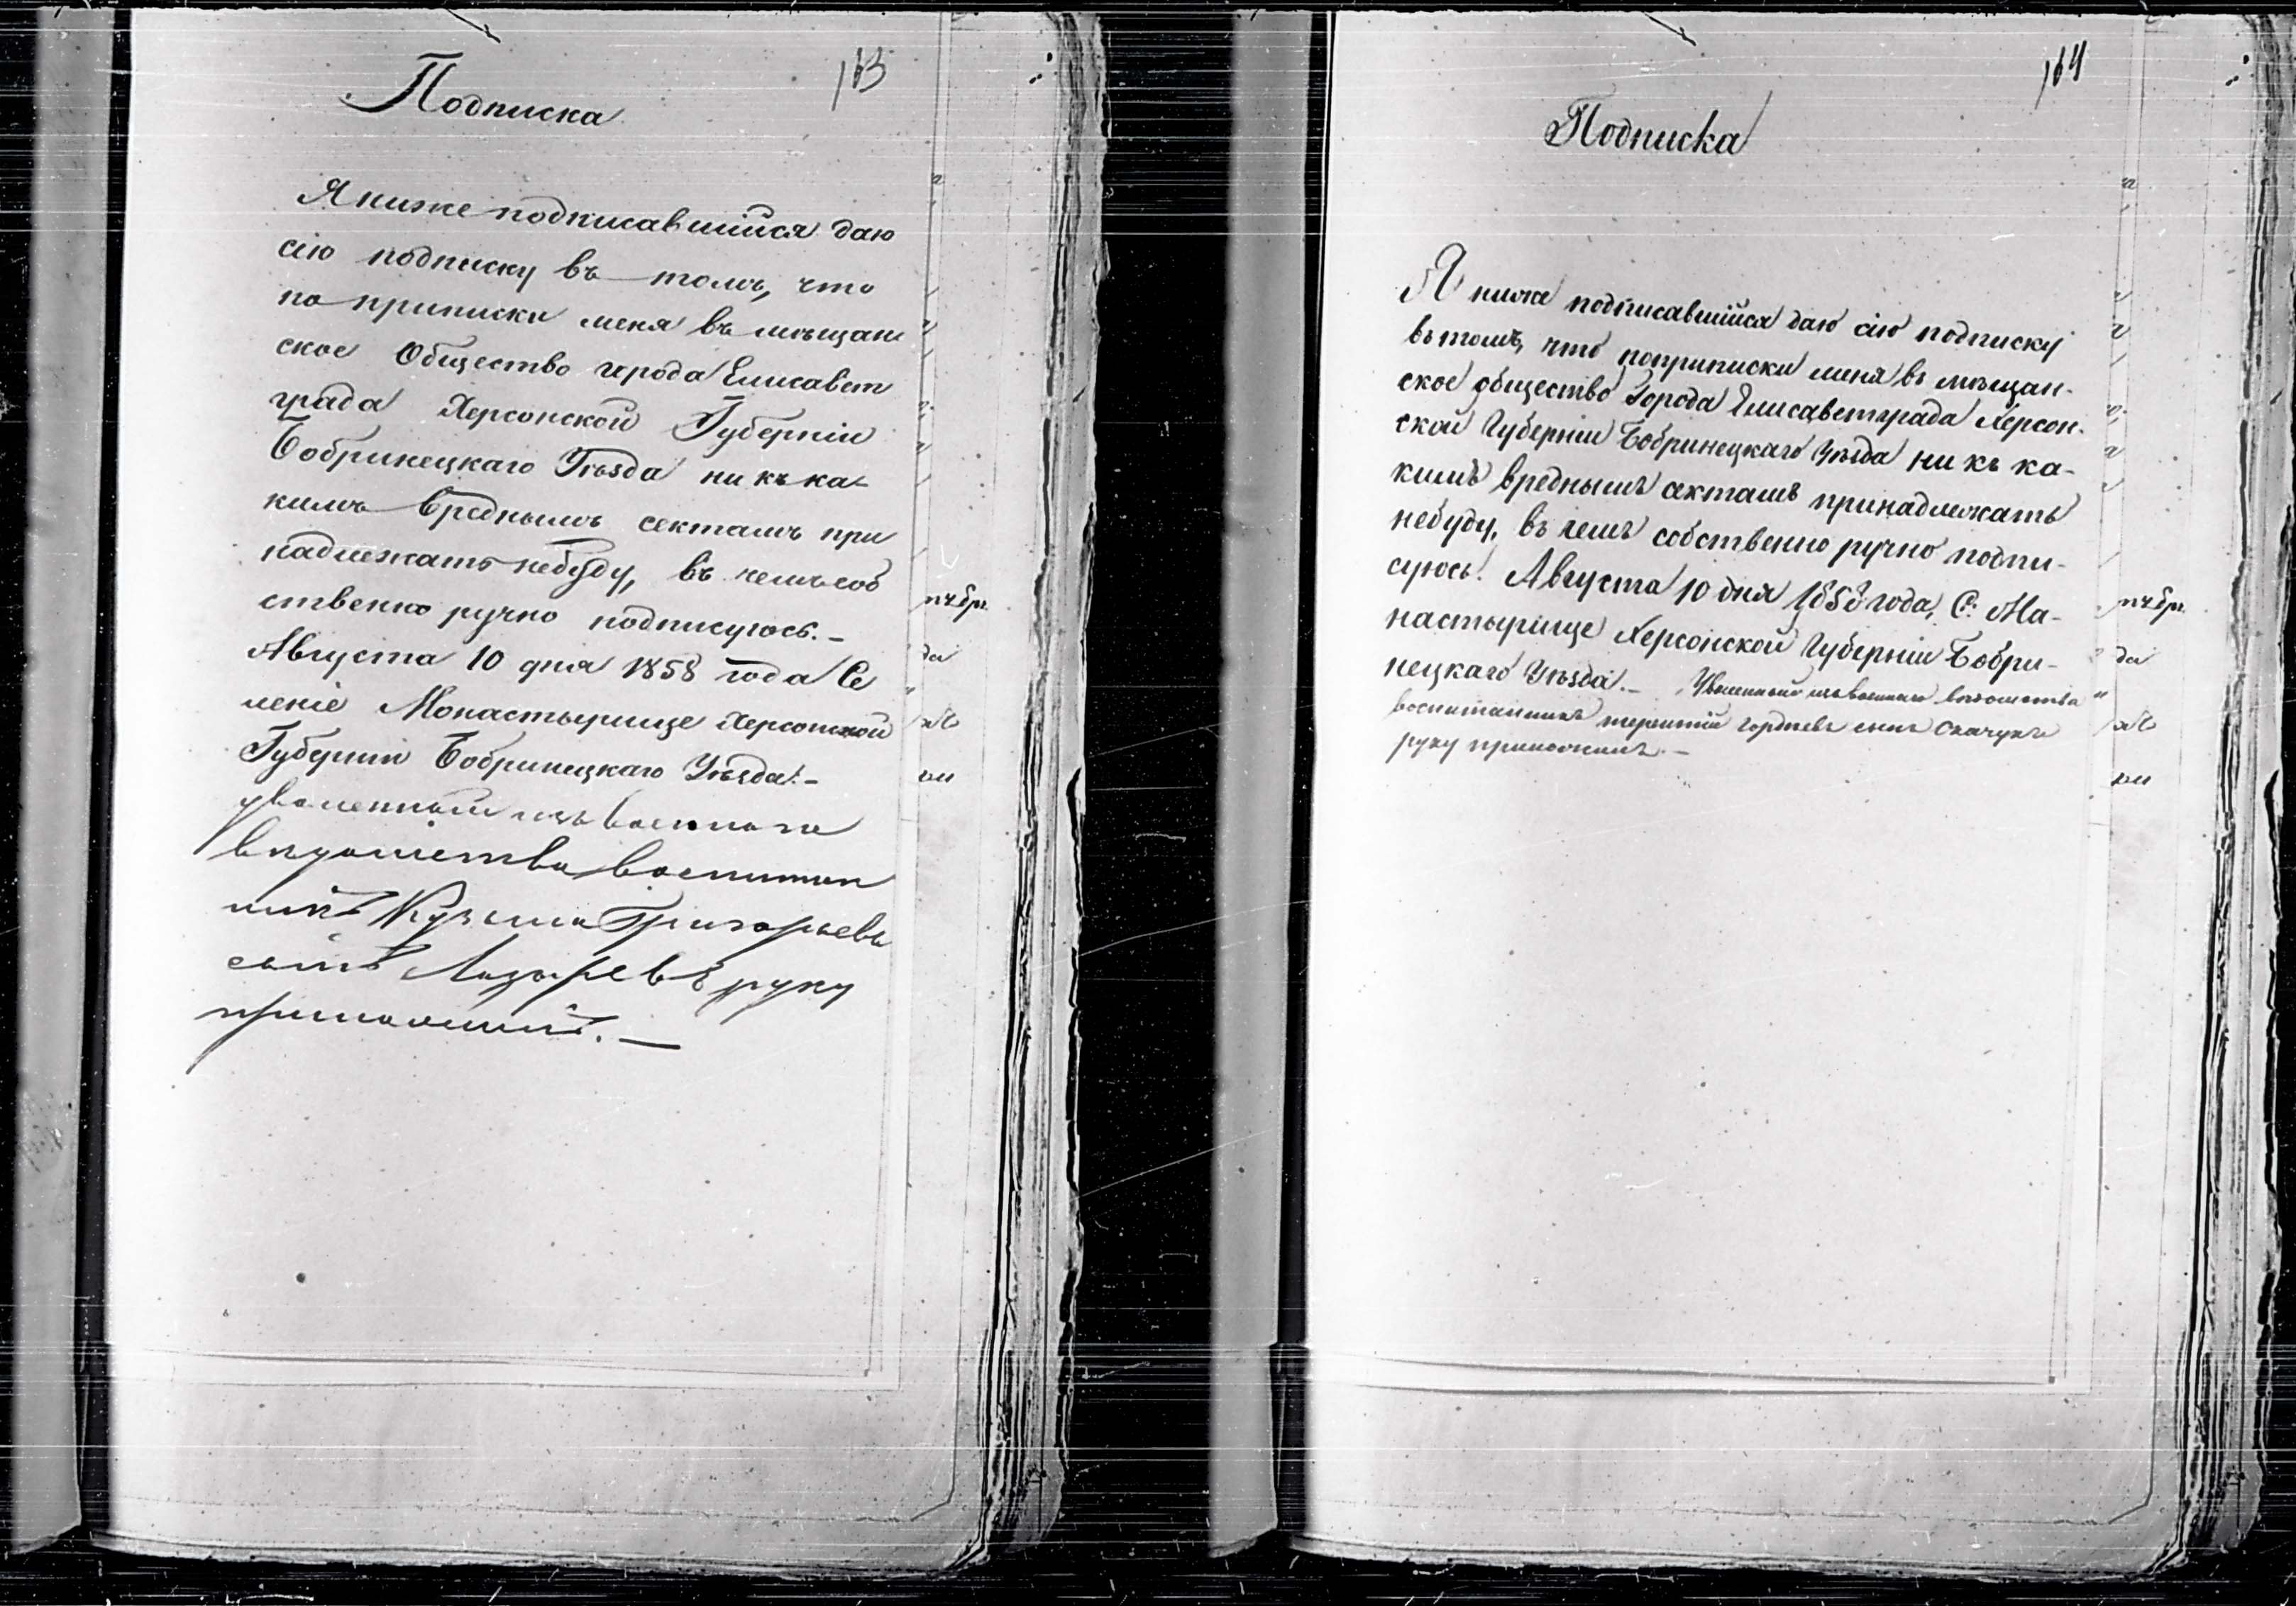 163
Подписка
Я ниже подписавшийся даю
сію подписку въ томъ, что
по приписки меня въ мѣщан
ское Общество города Елисавет
града Херсонской Губерніи
Бобринецкаго Уѣзда ни къ ка-
кимъ вреднымъ сектамъ при
надлежать небуду, въ чемъ соб
ственно ручно подписуюсь.-
Августа 10 дня 1858 года Се
леніе Монастырище Херсонской
Губерніи Бобринецкаго Уѣзда.-
уволенный изъ военнаго
вѣдомства воспитан
никъ Кузьма Григорьевъ
сынъ Лазаревъ руку
приложилъ.—
164
Подписка
Я ниже подписавшийся даю сію подписку
въ томъ, что поприписки меня въ мѣщан-
ское общество Города Елисаветграда Херсон-
ской Губерніи Бобринецкаго Уѣзда ни къ ка-
кимъ вреднымъ сектамъ принадлежать
небуду, въ чемъ собственно ручно подпи-
суюсь. Августа 10 дня 1858 года, С: Ма-
настырище Херсонской Губерніи Бобри-
нецкаго Уѣзда.- Уволенный изъ военнаго вѣдомства
воспитанникъ терентій гордѣевъ сынъ Скачукъ
руку приложилъ.—